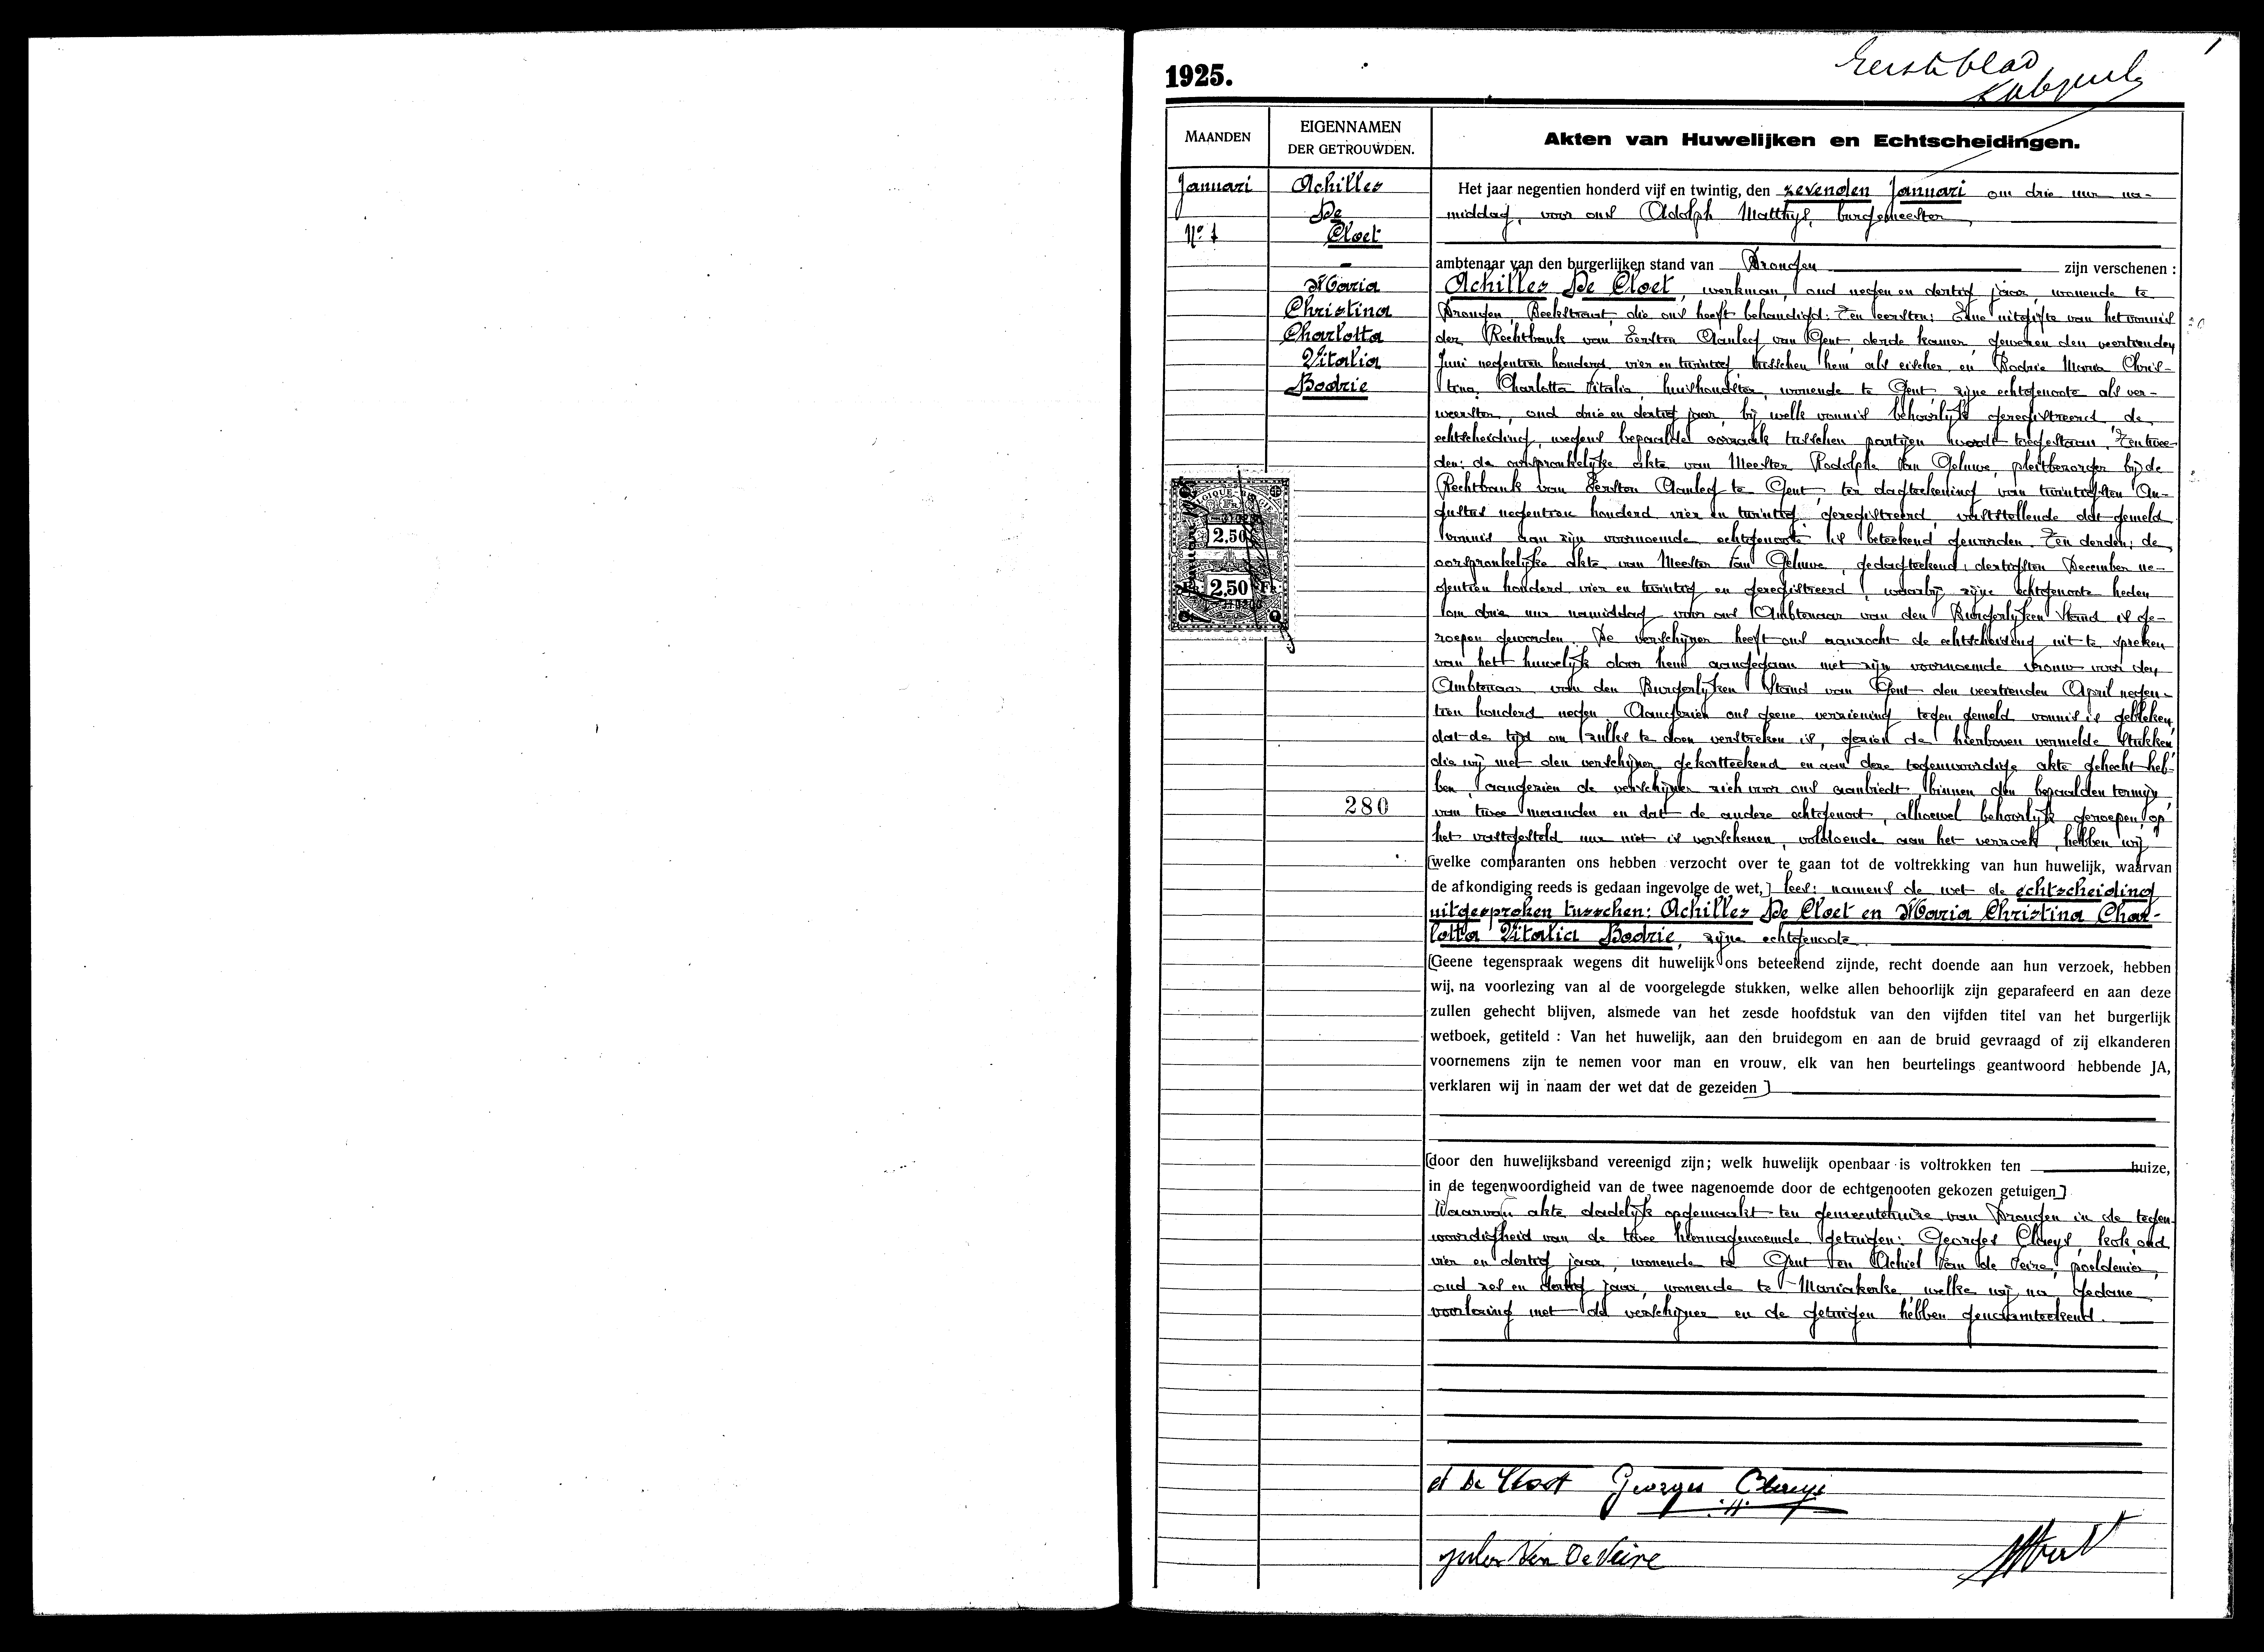 1925.
Eersteblad
1
MAANDEN
EIGENNAMEN
DER GETROUWDEN.
Akten van Huwelijken en Echtscheidingen.
Januari
No 1
Achilles
De
Cloet
Maria
Christina
Charlotta
Vitalia
Bodrie
2,50
2,50
280
Het jaar negentien honderd vijf en twintig, den zevenden Januari om drie uur na-
middag, voor ons Adolph Matthys, burgemeester,
ambtenaar van den burgerlijken stand van Drongen zijn verschenen :
Achilles De Cloet, werkman, oud negen en dertig jaar, wonende te
Drongen, Beekstraat, die ons heeft behandigd: Ten eersten: Eene uitgifte van het vonnis
der Rechtbank van Eersten Aanleg van Gent, derde kamer, gewezen den veertienden
Juni negentien honderd vier en twintig tusschen hem als eischer en Bodrie Maria Chris-
tina, Charlotta Vitalia, huishoudster, wonende te Gent, zijne echtgenoote als ver-
weerster, oud drie en dertig jaar, bij welk vonnis behoorlijk geregistreerd, de
echtscheiding, wegens bepaalde oorzaak tusschen partijen wordt toegestaan. Ten twee-
den: de oorspronkelijke akte van Meester Rodolphe Van Geluwe, pleitbezorger bij de
Rechtbank van Eersten Aanleg te Gent, ter dagteekening van twintigsten Au-
gustus negentien honderd vier en twintig, geregistreerd, vaststellende dat gemeld
vonnis aan zijn voornoemde echtgenoote is beteekend geworden. Ten derden: de
oorspronkelijke akte van Meester Van Geluwe, gedagteekend: dertigsten December ne-
gentien honderd vier en twintig en geregistreerd, waarbij zijne echtgenoote heden
om drie uur namiddag voor ons Ambtenaar van den Burgerlijken Stand is ge-
roepen geworden. De verschijner heeft ons aanzocht de echtscheiding uit te spreken
van het huwelijk door hem aangegaan met zijn voornoemde vrouw voor den
Ambtenaar van den Burgerlijken Stand van Gent den veertienden April negen-
tien honderd negen. Aangezien ons geene verziening tegen gemeld vonnis is gebleken,
dat de tijd om zulks te doen verstreken is, gezien de hierboven vermelde stukken
die wij met den verschijner gekortteekend en aan deze tegenwoordige akte gehecht heb-
ben, aangezien de verschijner zich voor ons aanbiedt binnen den bepaalden termijn
van twee maanden en dat de andere echtgenoot, alhoewel behoorlijk geroepen, op
het vastgesteld uur niet is verschenen, voldoende aan het verzoek, hebben wij
[welke comparanten ons hebben verzocht over te gaan tot de voltrekking van hun huwelijk, waarvan
de afkondiging reeds is gedaan ingevolge de wet,] lees: namens de wet de echtscheiding
uitgesproken tusschen: Achilles De Cloet en Maria Christina Char-
lotta Vitalia Bodrie, zijne echtgenoote.
[Geene tegenspraak wegens dit huwelijk ons beteekend zijnde, recht doende aan hun verzoek, hebben
wij, na voorlezing van al de voorgelegde stukken, welke allen behoorlijk zijn geparafeerd en aan deze
zullen gehecht blijven, alsmede van het zesde hoofdstuk van den vijfden titel van het burgerlijk
wetboek, getiteld : Van het huwelijk, aan den bruidegom en aan de bruid gevraagd of zij elkanderen
voornemens zijn te nemen voor man en vrouw, elk van hen beurtelings geantwoord hebbende JA,
verklaren wij in naam der wet dat de gezeiden]
[door den huwelijksband vereenigd zijn; welk huwelijk openbaar is voltrokken ten huize,
in de tegenwoordigheid van de twee nagenoemde door de echtgenooten gekozen getuigen]
Waarvan akte dadelijk opgemaakt ten gemeentehuize van Drongen in de tegen-
woordigheid van de twee hiernagenoemde getuigen: Georges Claeys, kok, oud
vier en dertig jaar, wonende te Gent en Achiel Van de Veire, poeldenier,
oud zes en dertig jaar, wonende te Mariakerke, welke wij na gedane
voorlezing met de verschijner en de getuigen hebben genaamteekend.
A De Cloet Georges Claeys
Van De Veire